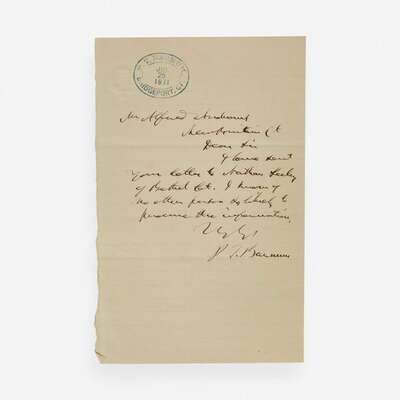 P. T. BARNUM
25
1877
BRIDGEPORT, CT.
Mr Alfred Andrews
New Britain Ct
Dear Sir
I have sent
your letter to Nathan Seeley
of Bethel Ct. I know of
no other person so likely to
procure the information.
P. T. Barnum